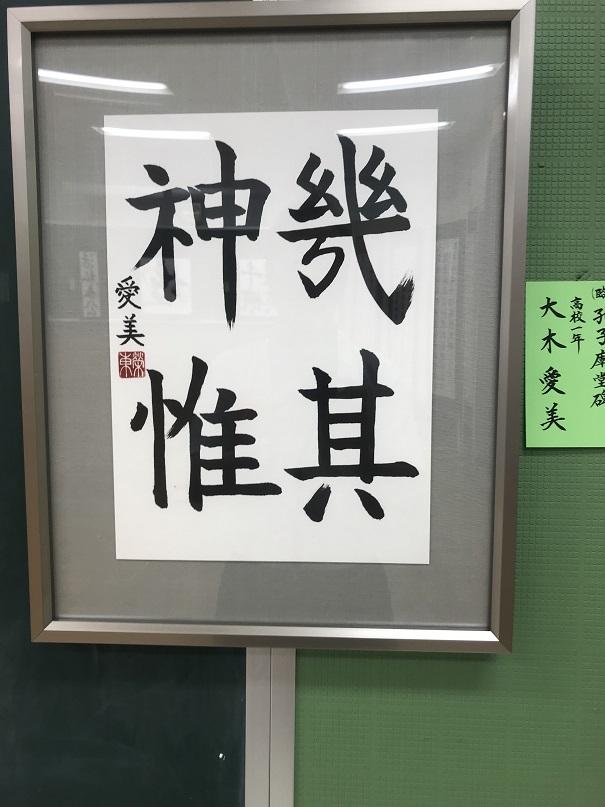 幾其
神惟
愛美
(臨)孔子庿堂碑
高校一年
大木愛美